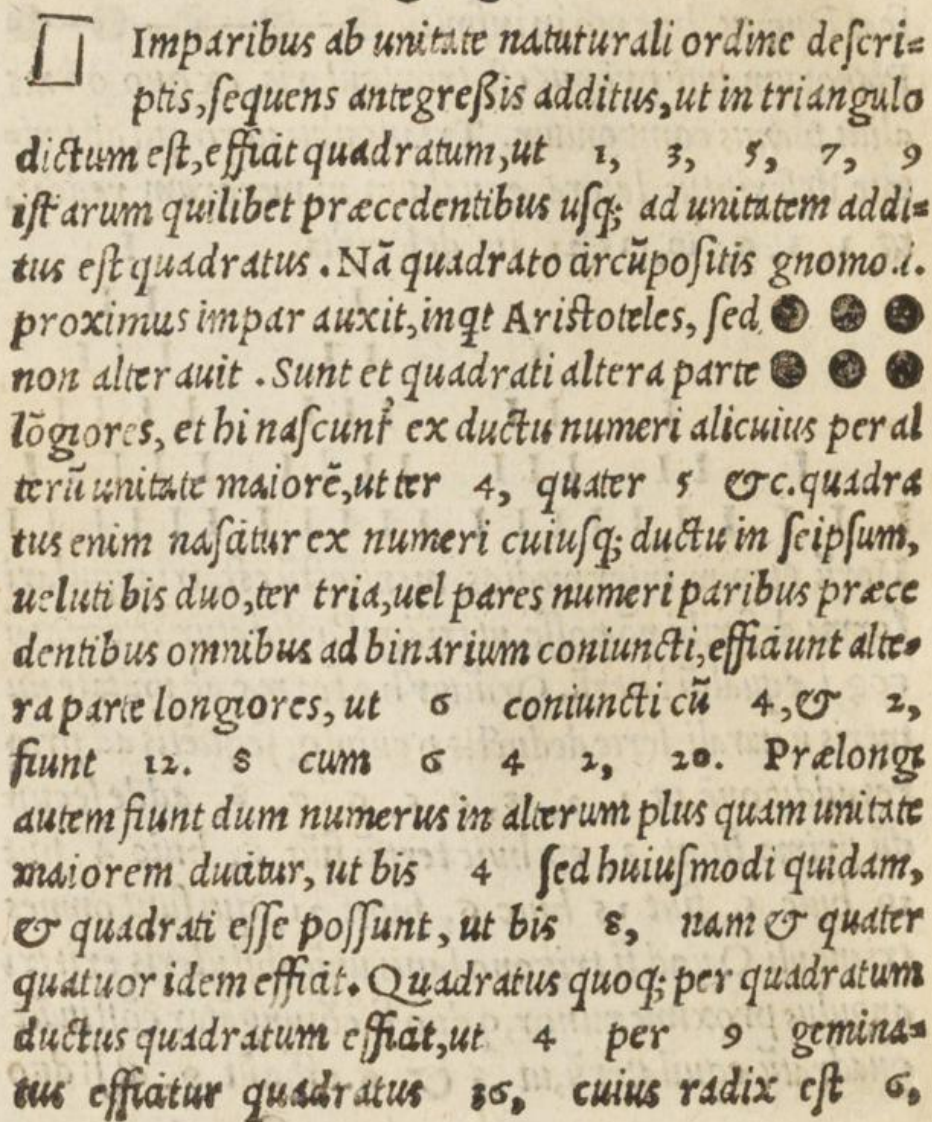 Imparibus ab unitate natuturali ordine deſcri=
ptis, ſequens antegreßis additus, ut in triangulo
dictum eſt, efficit quadratum, ut 1, 3, 5, 7, 9
iſtarum quilibet præcedentibus uſq; ad unitatem addi=
tus eſt quadratus. Nã quadrato circũpoſitis gnomo.i.
proximus impar auxit, inqt Ariſtoteles, ſed
non alterauit. Sunt et quadrati altera parte
lõgiores, et hi naſcunt᷑ ex ductu numeri alicuius per al
terũ unitate maiorẽ, ut ter 4, quater 5 &c. quadra
tus enim naſcitur ex numeri cuiuſq; ductu in ſeipſum,
ueluti bis duo, ter tria, uel pares numeri paribus præce
dentibus omnibus ad binarium coniuncti, efficiunt alte=
ra parte longiores, ut 6 coniuncti cũ 4, & 2,
fiunt 12. 8 cum 6 4 2, 20. Prælongi
autem fiunt dum numerus in alterum plus quam unitate
maiorem ducitur, ut bis 4 ſed huiuſmodi quidam,
& quadrati eſſe poſſunt, ut bis 8, nam & quater
quatuor idem efficit. Quadratus quoq; per quadratum
ductus quadratum efficit, ut 4 per 9 gemina=
tus efficitur quadratus 36, cuius radix eſt 6,